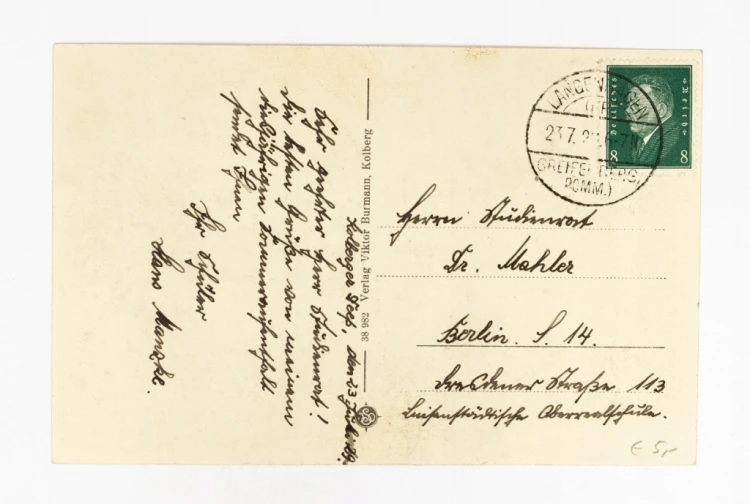 Kolberger Deep, den 23. Juli 29.
Sehr geehrter Herr Studienrat!
Die besten Grüße von meinem
diesjährigen Sommeraufenthalt
sendet Ihnen
Ihr Schüler
Hans
38 982 Verlag Viktor Burmann, Kolberg
GREIFENBERG,
POMM.)
23.7.
Deutsches Reich
8 8
Herrn Studienrat
Dr. Mahler
Berlin. S. 14.
Dresdener Straße 113
Luisenstädtische Oberrealschule.
€ 5,-